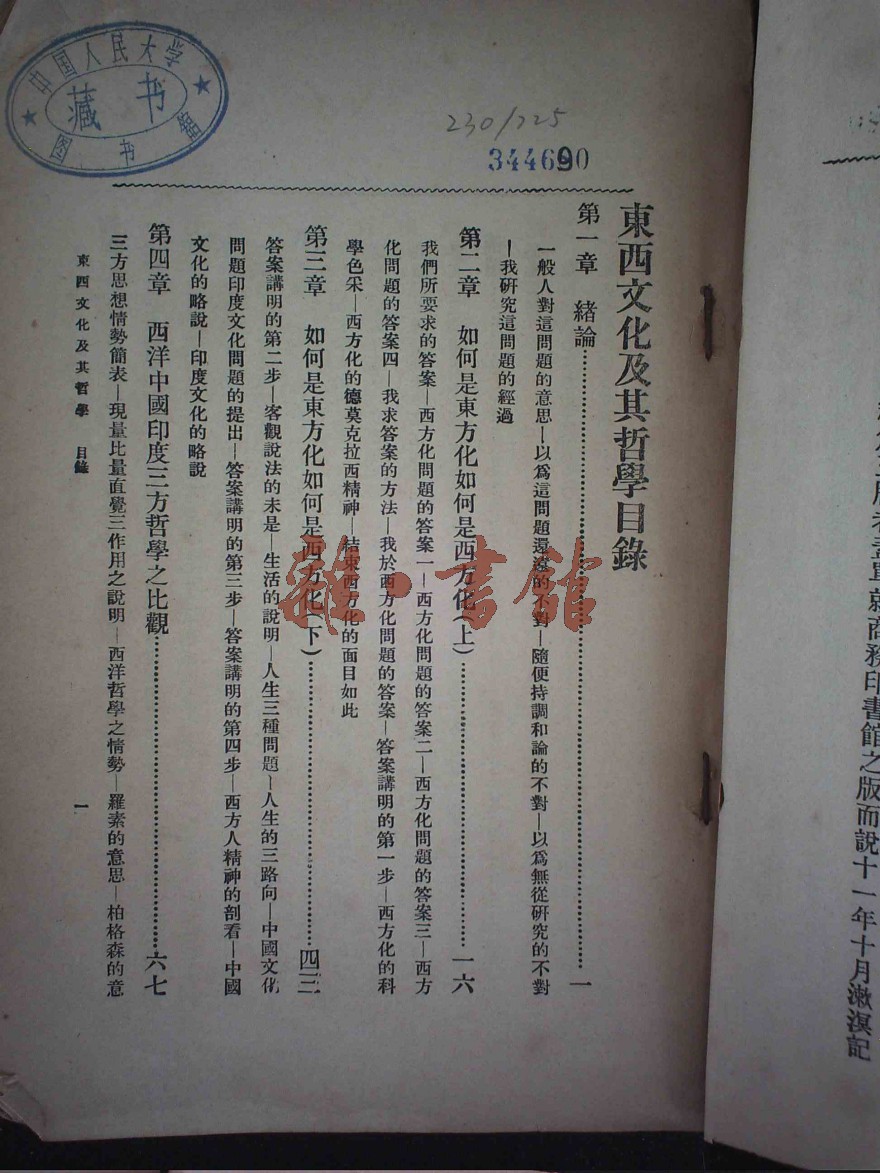 中国人民大学
藏书
图书馆
230/725
344690
東西文化及其哲學目錄
第一章　緒論……一
一般人對這問題的意思—以爲這問題還遠的不對—隨便持調和論的不對—以爲無從研究的不對
—我研究這問題的經過
第二章　如何是東方化如何是西方化(上)……一六
我們所要求的答案—西方化問題的答案一—西方化問題的答案二—西方化問題的答案三—西方
化問題的答案四—我求答案的方法—我於西方化問題的答案—答案講明的第一步—西方化的科
學色采—西方化的德莫克拉西精神—結束西方化的面目如此
第三章　如何是東方化如何是西方化(下)……四三
答案講明的第二步—客觀說法的未是—生活的說明—人生三種問題—人生的三路向—中國文化
問題印度文化問題的提出—答案講明的第三步—答案講明的第四步—西方人精神的剖看—中國
文化的略說—印度文化的略說
第四章　西洋中國印度三方哲學之比觀……六七
三方思想情勢簡表—現量比量直覺三作用之說明—西洋哲學之情勢—羅素的意思—柏格森的意
東西文化及其哲學　目錄
一
雜·書館
者盡單就商務印書館之版而說十一年十月漱溟記